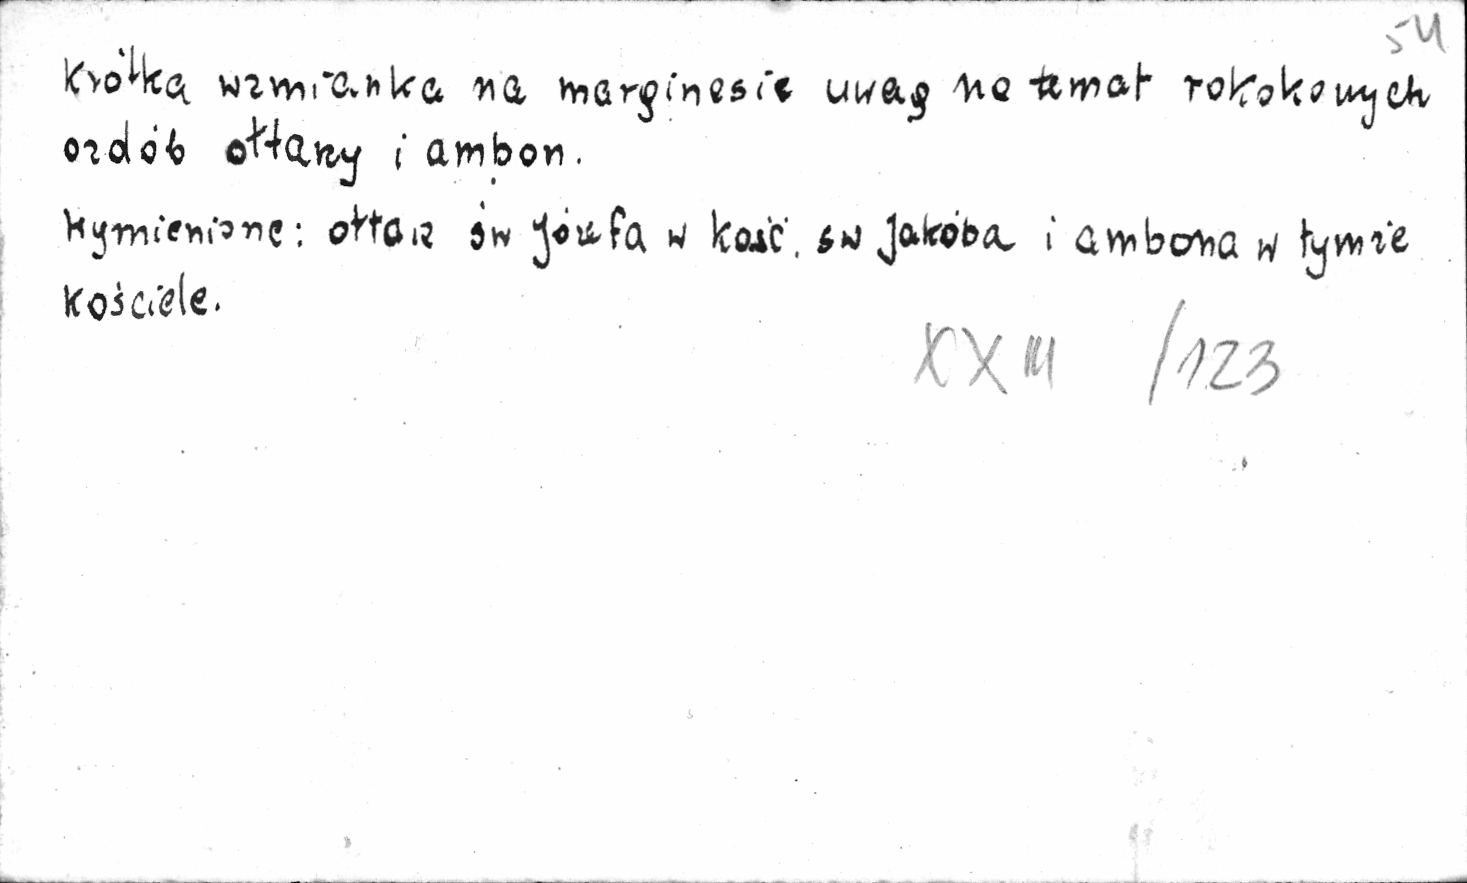 54
Krótka wzmianka na marginesie uwag na temat rokokowych
ozdób ołtarzy i ambon.
Wymienione: ołtarz św Józefa w kość. sw Jakóba i ambona w tymże
kościele.
XXIII /123